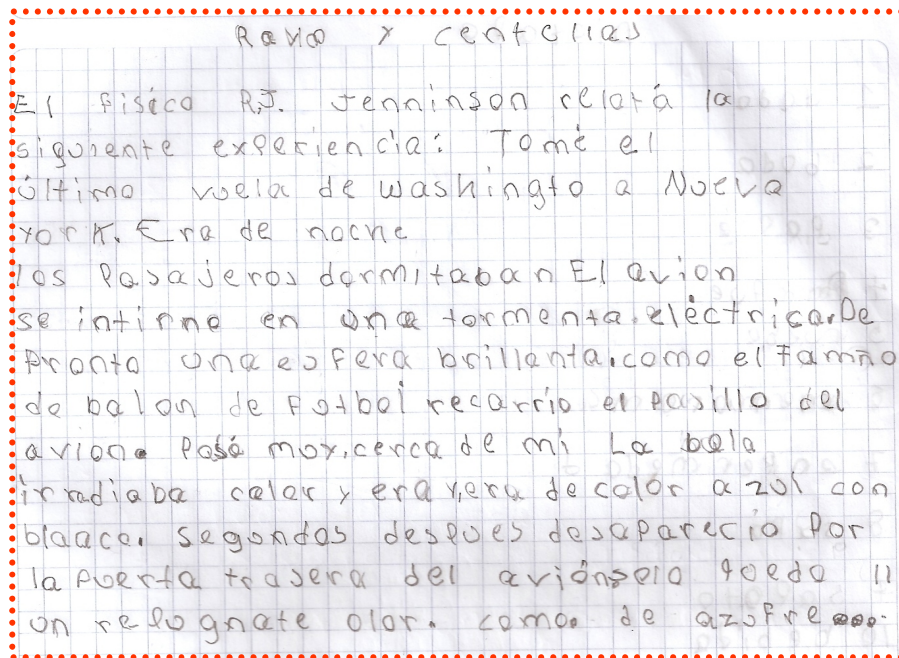 Ravo y centellas
El físico R.J. Jenninson relatá la
siguiente experiencia: Tomé el
último vuela de washingto a Nueva
york. Era de noche
los Pasajeros dormitaban El avion
se intirno en una tormenta.eléctrica.De
pronto una esfera brillanta.como el tamño
de balon de fotbol recarrio el pasillo del
avion. Pasó moy.cerca de mi La bola
irradiaba calar y era y,era de color azul con
blaace. segundos despues desaparecio Por
la puerta trasera del aviónsolo quedo
un refugnate olor. como. de azufre